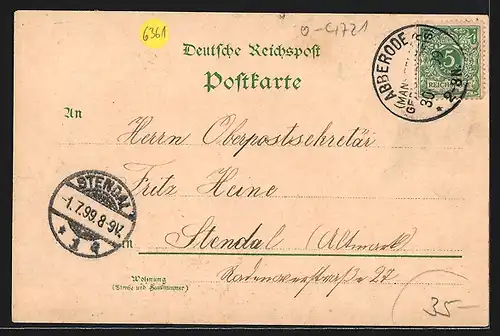 6361
0-4721
Deutsche Reichspost
Postkarte
ABBERODE
(MAN
30
* 2-8N.
5
An
Herrn Oberpostsekretär
Fritz Heine
STENDAL
-1.7.99.8-9V.
* 1 q
in Stendal (Altmark)
27
Wohnung
(Straße und Hausnummer)
35-